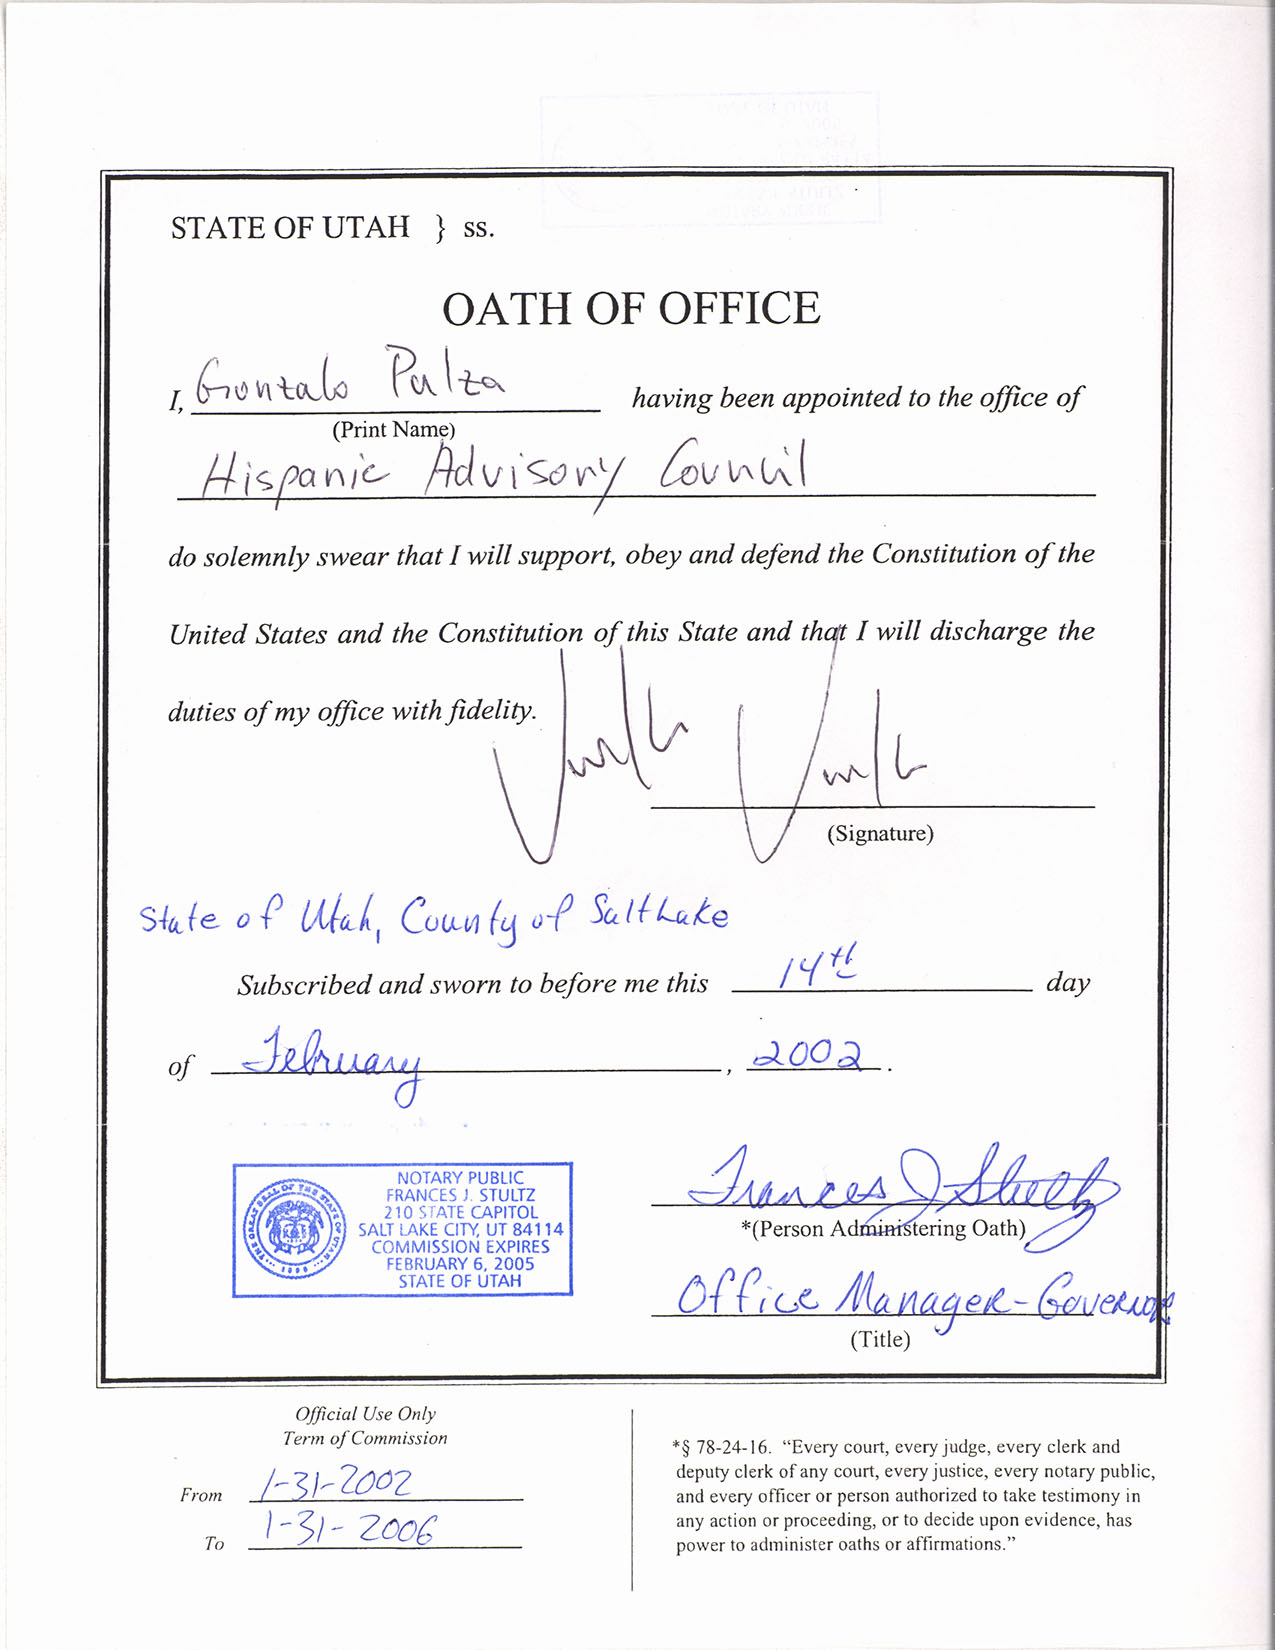 STATE OF UTAH } ss.
OATH OF OFFICE
I, Gonzalo Palza having been appointed to the office of
(Print Name)
Hispanic Advisory Council
do solemnly swear that I will support, obey and defend the Constitution of the
United States and the Constitution of this State and that I will discharge the
duties of my office with fidelity.
(Signature)
State of Utah, County of Salt Lake
Subscribed and sworn to before me this 14th day
of February, 2002.
NOTARY PUBLIC
FRANCES J. STULTZ
210 STATE CAPITOL
SALT LAKE CITY, UT 84114
COMMISSION EXPIRES
FEBRUARY 6, 2005
STATE OF UTAH
THE GREAT SEAL OF THE STATE OF UTAH
1896
Frances J Stultz
*(Person Administering Oath)
Office Manager-Governor
(Title)
Official Use Only
Term of Commission
From 1-31-2002
To 1-31-2006
*§ 78-24-16. "Every court, every judge, every clerk and
deputy clerk of any court, every justice, every notary public,
and every officer or person authorized to take testimony in
any action or proceeding, or to decide upon evidence, has
power to administer oaths or affirmations."